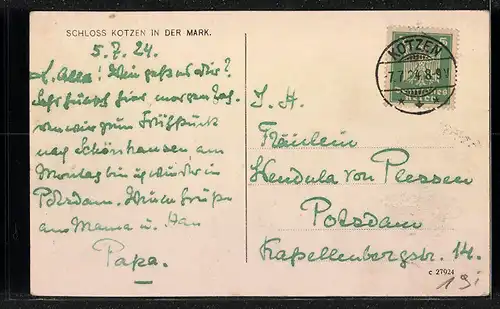 SCHLOSS KOTZEN IN DER MARK.
5.7.24.
Wie geht es dir?
Sehr hübsch hier, morgen
wir zum Frühstück
nach Schönhausen, am
Montag bin ich wieder in
Potsdam. Grüße
an Mama u.
Papa.
KOTZEN
7.7.24.8-9V
5
Fräulein
von Plessen
Potsdam
Kapellenbergstr. 14.
c 27924